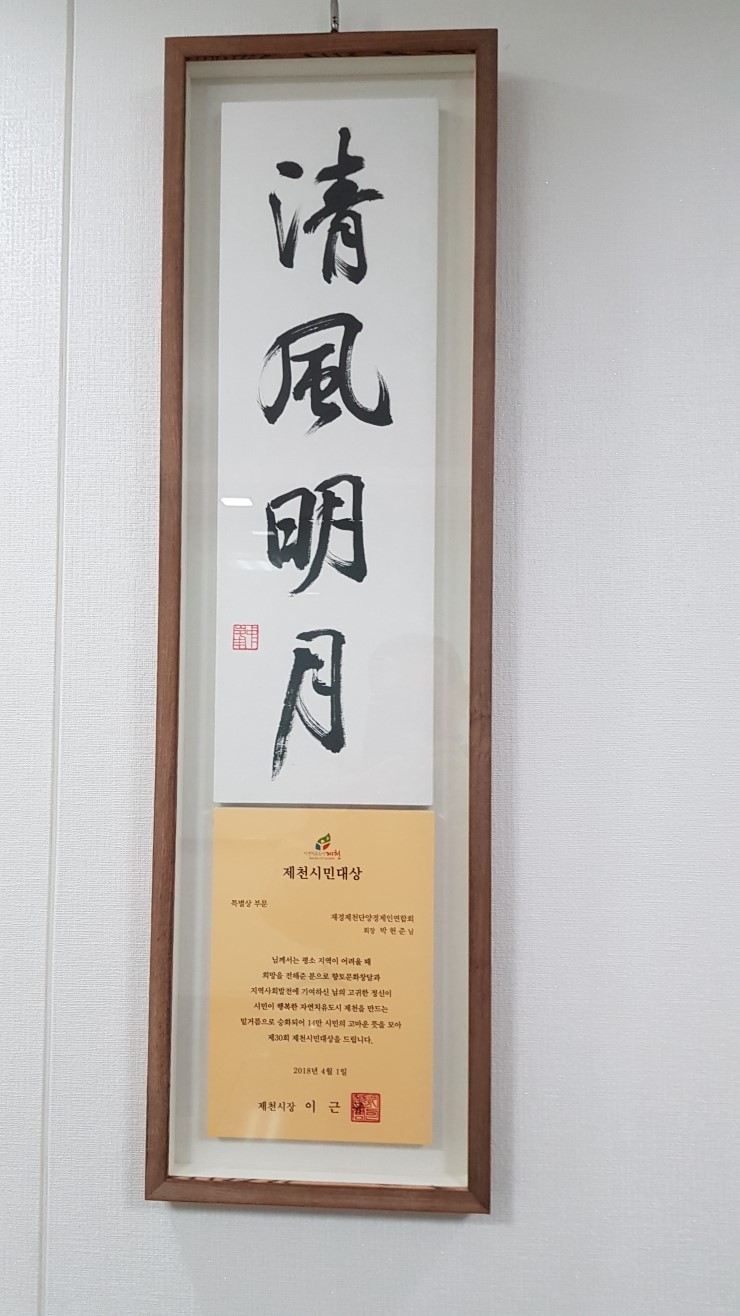 清
風
明
月
제천
제천시민대상
특별상 부문
재경제천단양경제인연합회
회장 박현준 님
님께서는 평소 지역이 어려울 때
희망을 전해준 분으로 향토문화창달과
지역사회발전에 기여하신 님의 고귀한 정신이
시민이 행복한 자연치유도시 제천을 만드는
밑거름으로 승화되어 14만 시민의 고마운 뜻을 모아
제30회 제천시민대상을 드립니다.
2018년 4월 1일
제천시장 이 근